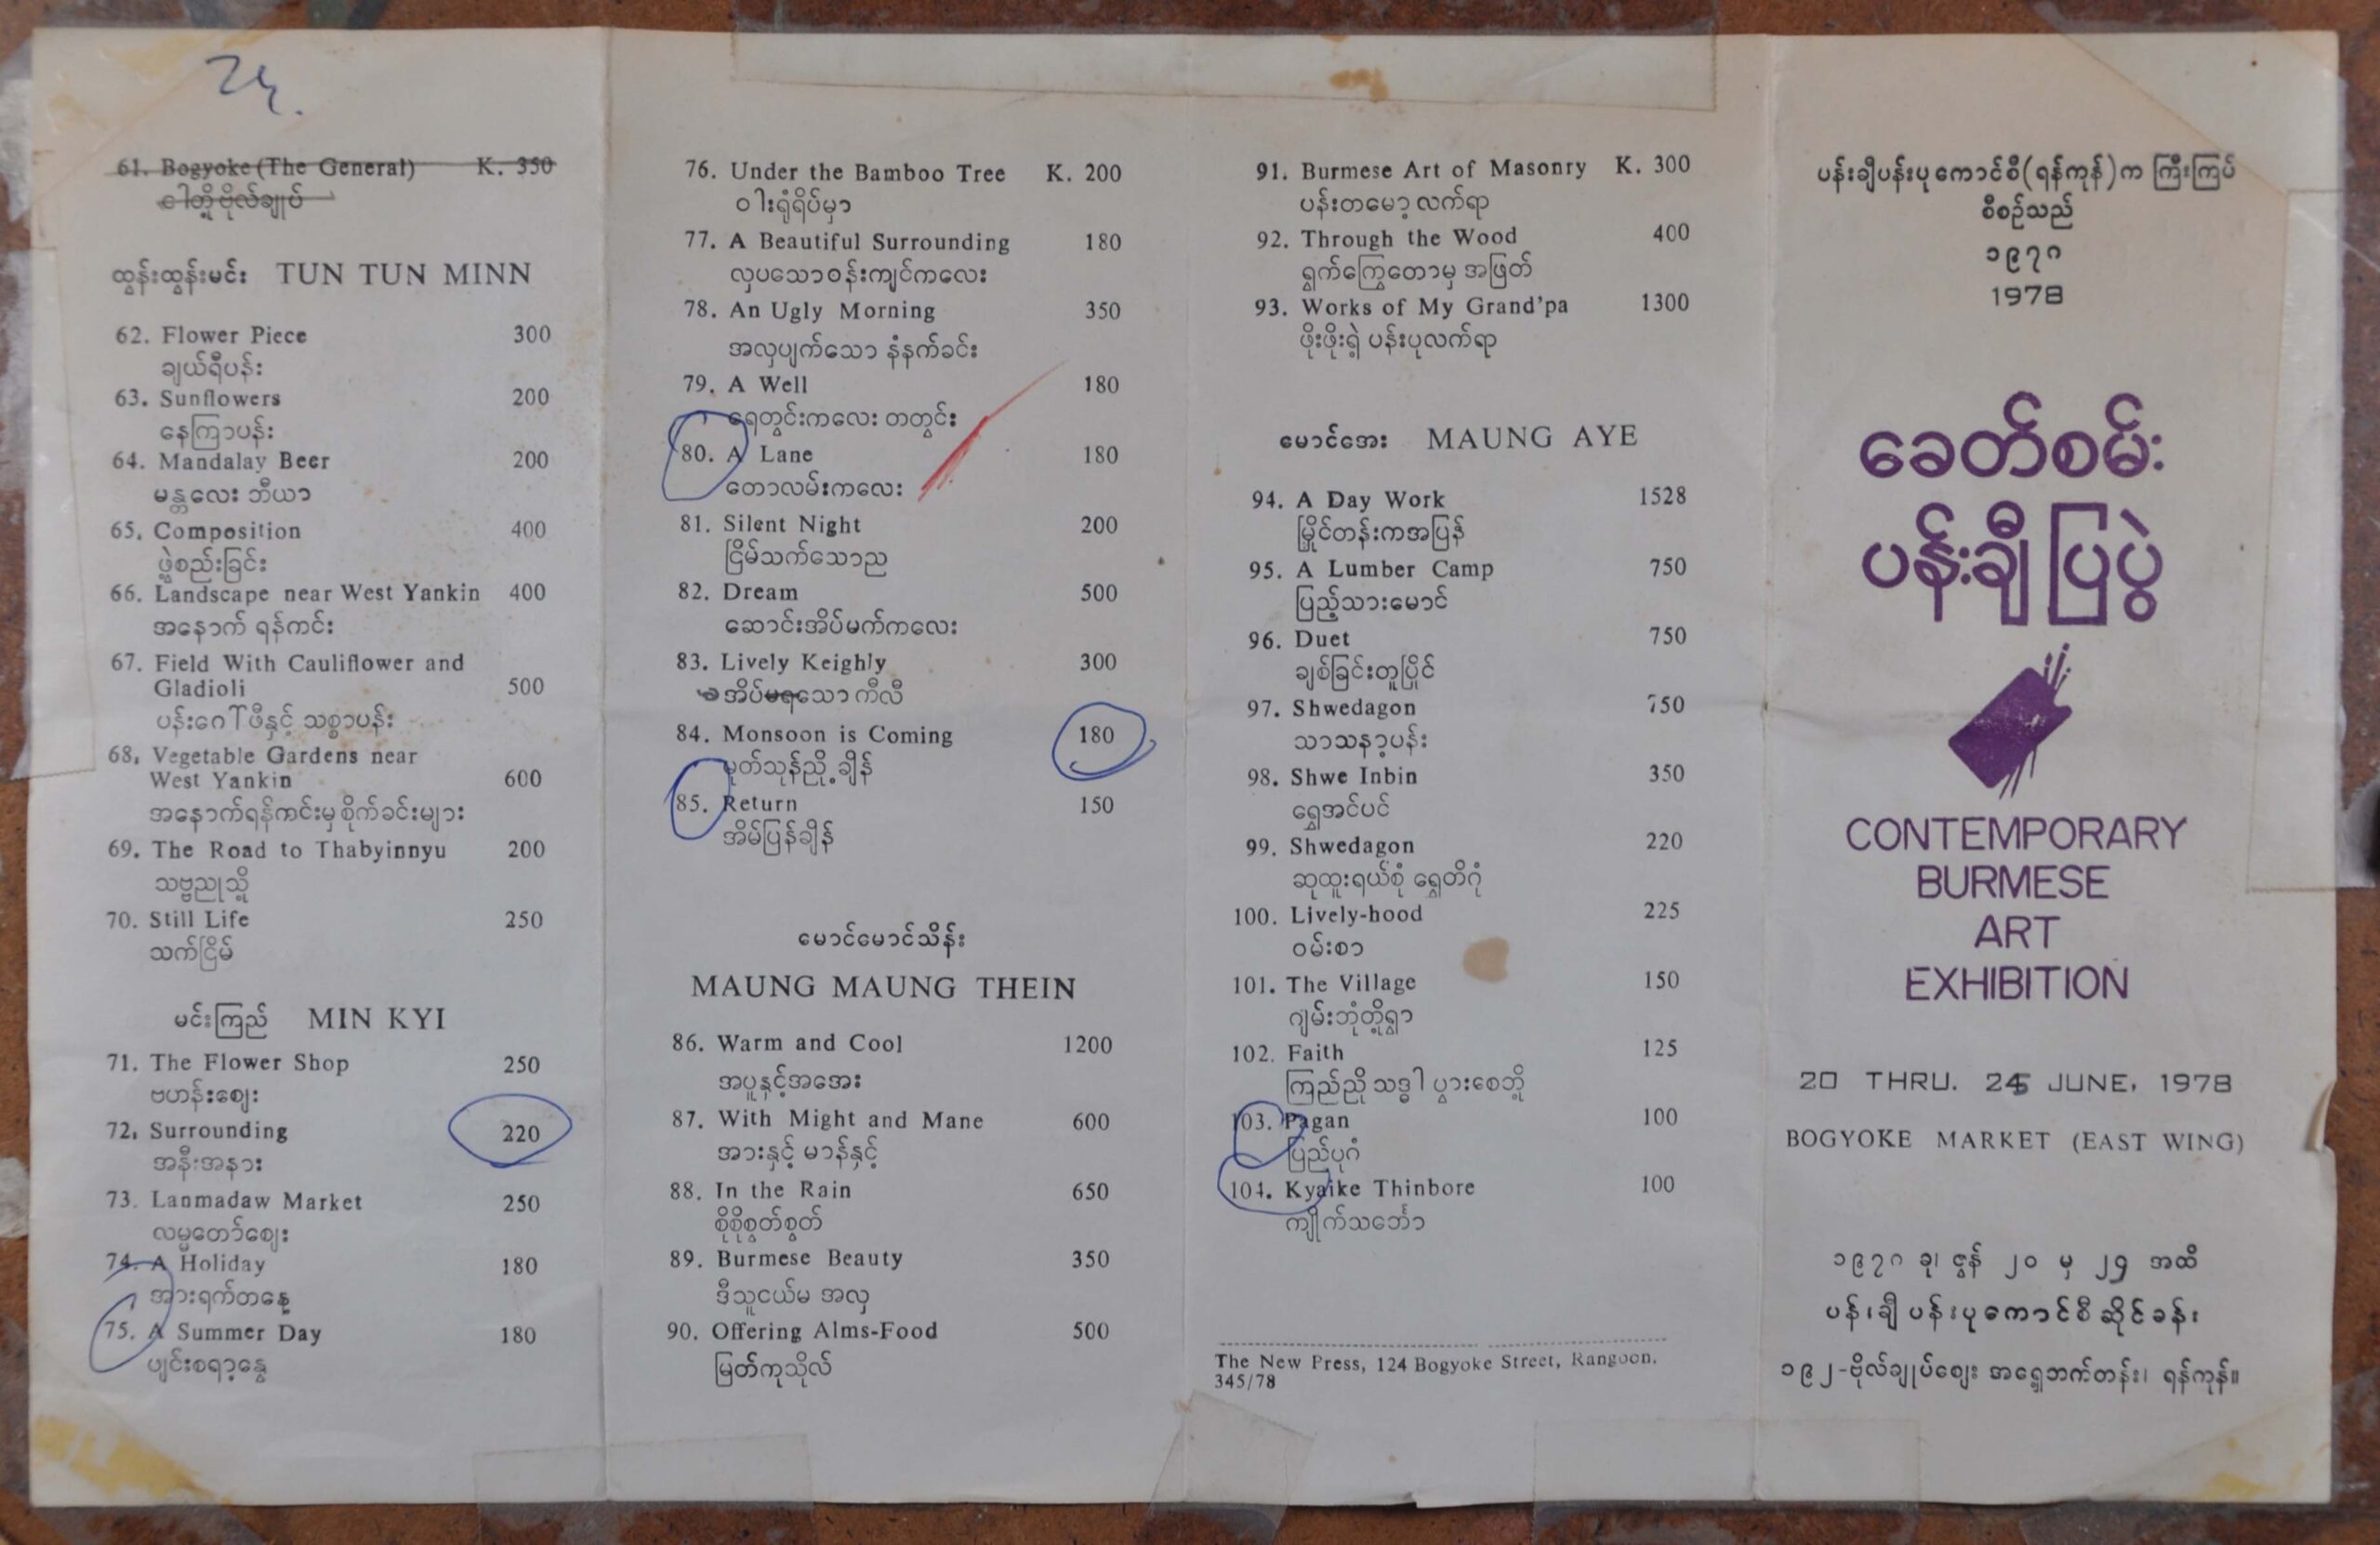 61. Bogyoke (The General) K. 350
ငါတို့ဗိုလ်ချုပ်
ထွန်းထွန်းမင်း TUN TUN MINN
62. Flower Piece 300
ချယ်ရီပန်း
63. Sunflowers 200
နေကြာပန်း
64. Mandalay Beer 200
မန္တလေး ဘီယာ
65. Composition 400
ဖွဲ့စည်းခြင်း
66. Landscape near West Yankin 400
အနောက် ရန်ကင်း
67. Field With Cauliflower and
Gladioli 500
ပန်းဂေါ်ဖီနှင့် သစ္စာပန်း
68. Vegetable Gardens near
West Yankin 600
အနောက်ရန်ကင်းမှစိုက်ခင်းများ
69. The Road to Thabyinnyu 200
သဗ္ဗညုသို့
70. Still Life 250
သက်ငြိမ်
မင်းကြည် MIN KYI
71. The Flower Shop 250
ဗဟန်းဈေး
72. Surrounding 220
အနီးအနား
73. Lanmadaw Market 250
လမ္မတော်ဈေး
74. A Holiday 180
အားရက်တနေ့
75. A Summer Day 180
ပျင်းစရာ့နွေ
76. Under the Bamboo Tree K. 200
ဝါးရုံရိပ်မှာ
77. A Beautiful Surrounding 180
လှပသောဝန်းကျင်ကလေး
78. An Ugly Morning 350
အလှပျက်သော နံနက်ခင်း
79. A Well 180
ရေတွင်းကလေး တတွင်း
80. A Lane 180
တောလမ်းကလေး
81. Silent Night 200
ငြိမ်သက်သောည
82. Dream 500
ဆောင်းအိပ်မက်ကလေး
83. Lively Keighly 300
အိပ်မရသော ကီလီ
84. Monsoon is Coming 180
မုတ်သုန်ညို့ချိန်
85. Return 150
အိမ်ပြန်ချိန်
မောင်မောင်သိန်း
MAUNG MAUNG THEIN
86. Warm and Cool 1200
အပူနှင့်အအေး
87. With Might and Mane 600
အားနှင့် မာန်နှင့်
88. In the Rain 650
စိုစိုစွတ်စွတ်
89. Burmese Beauty 350
ဒီသူငယ်မ အလှ
90. Offering Alms-Food 500
မြတ်ကုသိုလ်
91. Burmese Art of Masonry K. 300
ပန်းတမော့လက်ရာ
92. Through the Wood 400
ရွက်ကြွေတောမှ အဖြတ်
93. Works of My Grand'pa 1300
ဖိုးဖိုးရဲ့ ပန်းပုလက်ရာ
မောင်အေး MAUNG AYE
94. A Day Work 1528
မြှိုင်တန်းကအပြန်
95. A Lumber Camp 750
ပြည့်သားမောင်
96. Duet 750
ချစ်ခြင်းတူပြိုင်
97. Shwedagon 750
သာသနာ့ပန်း
98. Shwe Inbin 350
ရွှေအင်ပင်
99. Shwedagon 220
ဆုထူးရယ်စုံ ရွှေတိဂုံ
100. Lively-hood 225
ဝမ်းစာ
101. The Village 150
ဂျမ်းဘုံတို့ရွာ
102. Faith 125
ကြည်ညို သဒ္ဓါ ပွားစေဘို့
103. Pagan 100
ပြည်ပုဂံ
104. Kyaike Thinbore 100
ကျိုက်သင်္ဘော
The New Press, 124 Bogyoke Street, Rangoon.
345/78
ပန်းချီပန်းပုကောင်စီ(ရန်ကုန်)က ကြီးကြပ်
စီစဉ်သည်
၁၉၇၈
1978
ခေတ်စမ်း
ပန်းချီ ပြပွဲ
CONTEMPORARY
BURMESE
ART
EXHIBITION
20 THRU. 24 JUNE, 1978
BOGYOKE MARKET (EAST WING)
၁၉၇၈ ခု၊ ဇွန် ၂၀ မှ ၂၄ အထိ
ပန်းချီ ပန်းပုကောင်စီဆိုင်ခန်း
၁၉၂-ဗိုလ်ချုပ်ဈေး အရှေ့ဘက်တန်း၊ ရန်ကုန်။